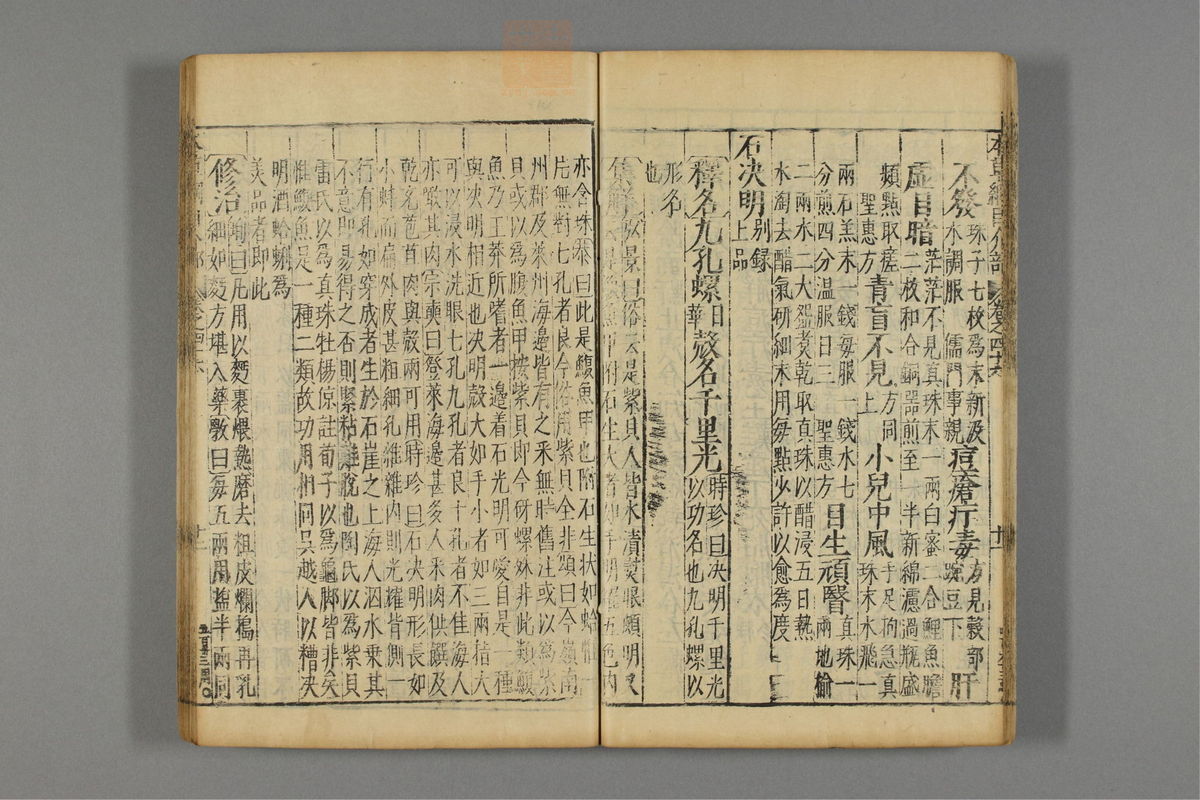 不發珠子七枚爲末新汲水調服 儒門事親 痘瘡疔毒方見穀部豌豆下 肝
虛目暗茫茫不見真珠末一兩白蜜二合鯉魚膽二枚和合銅器煎至一半新綿濾過瓶盛
頻點取瘥 聖惠方 青盲不見方同上 小兒中風手足拘急真珠末水飛一
兩石羔末一錢每服一錢水七分煎四分溫服日三 聖惠方 目生頑翳真珠一兩地榆
二兩水二大盌煑乾取真珠以醋浸五日熱水淘去醋氣研細末用每點少許以愈爲度
石決明別錄上品
釋名九孔螺日華殼名千里光時珍曰決明千里光以功名也九孔螺以
形名也
集解弘景曰俗云是紫貝人皆水漬熨眼頗明又
亦含珠恭曰此是鰒魚甲也附石生狀如蛤惟一
片無對七孔者良今俗用紫貝全非頌曰今嶺南
州郡及萊州海邊皆有之釆無時舊注或以爲紫
貝或以爲鰒魚甲按紫貝即今砑螺殊非此類鰒
魚乃王莽所嗜者一邊着石光明可愛自是一種
與決明相近也決明殼大如手小者如三兩指大
可以浸水洗眼七孔九孔者良十孔者不佳海人
亦啖其肉宗奭曰登萊海邊甚多人釆肉供饌及
乾充苞苴肉與殼兩可用時珍曰石決明形長如
小蚌而扁外皮甚粗細孔雜雜內則光耀背側一
行有孔如穿成者生於石崖之上海人泅水乗其
不意即易得之否則緊粘難脫也陶氏以爲紫貝
雷氏以爲真珠牡楊倞註荀子以爲龜脚皆非矣
惟鰒魚是一種二類故功用相同吳越人以糟决
明酒蛤蜊爲
美品者即此
修治珣曰凡用以麪裹煨熟磨去粗皮爛搗再乳細如麪方堪入藥斅曰每五兩用鹽半兩同